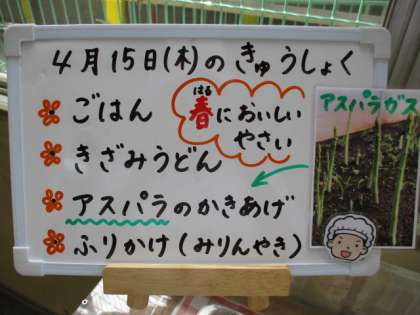 4月15日(木)のきゅうしょく
ごはん
きざみうどん
アスパラのかきあげ
ふりかけ(みりんやき)
はる
春においしい
やさい
アスパラガス